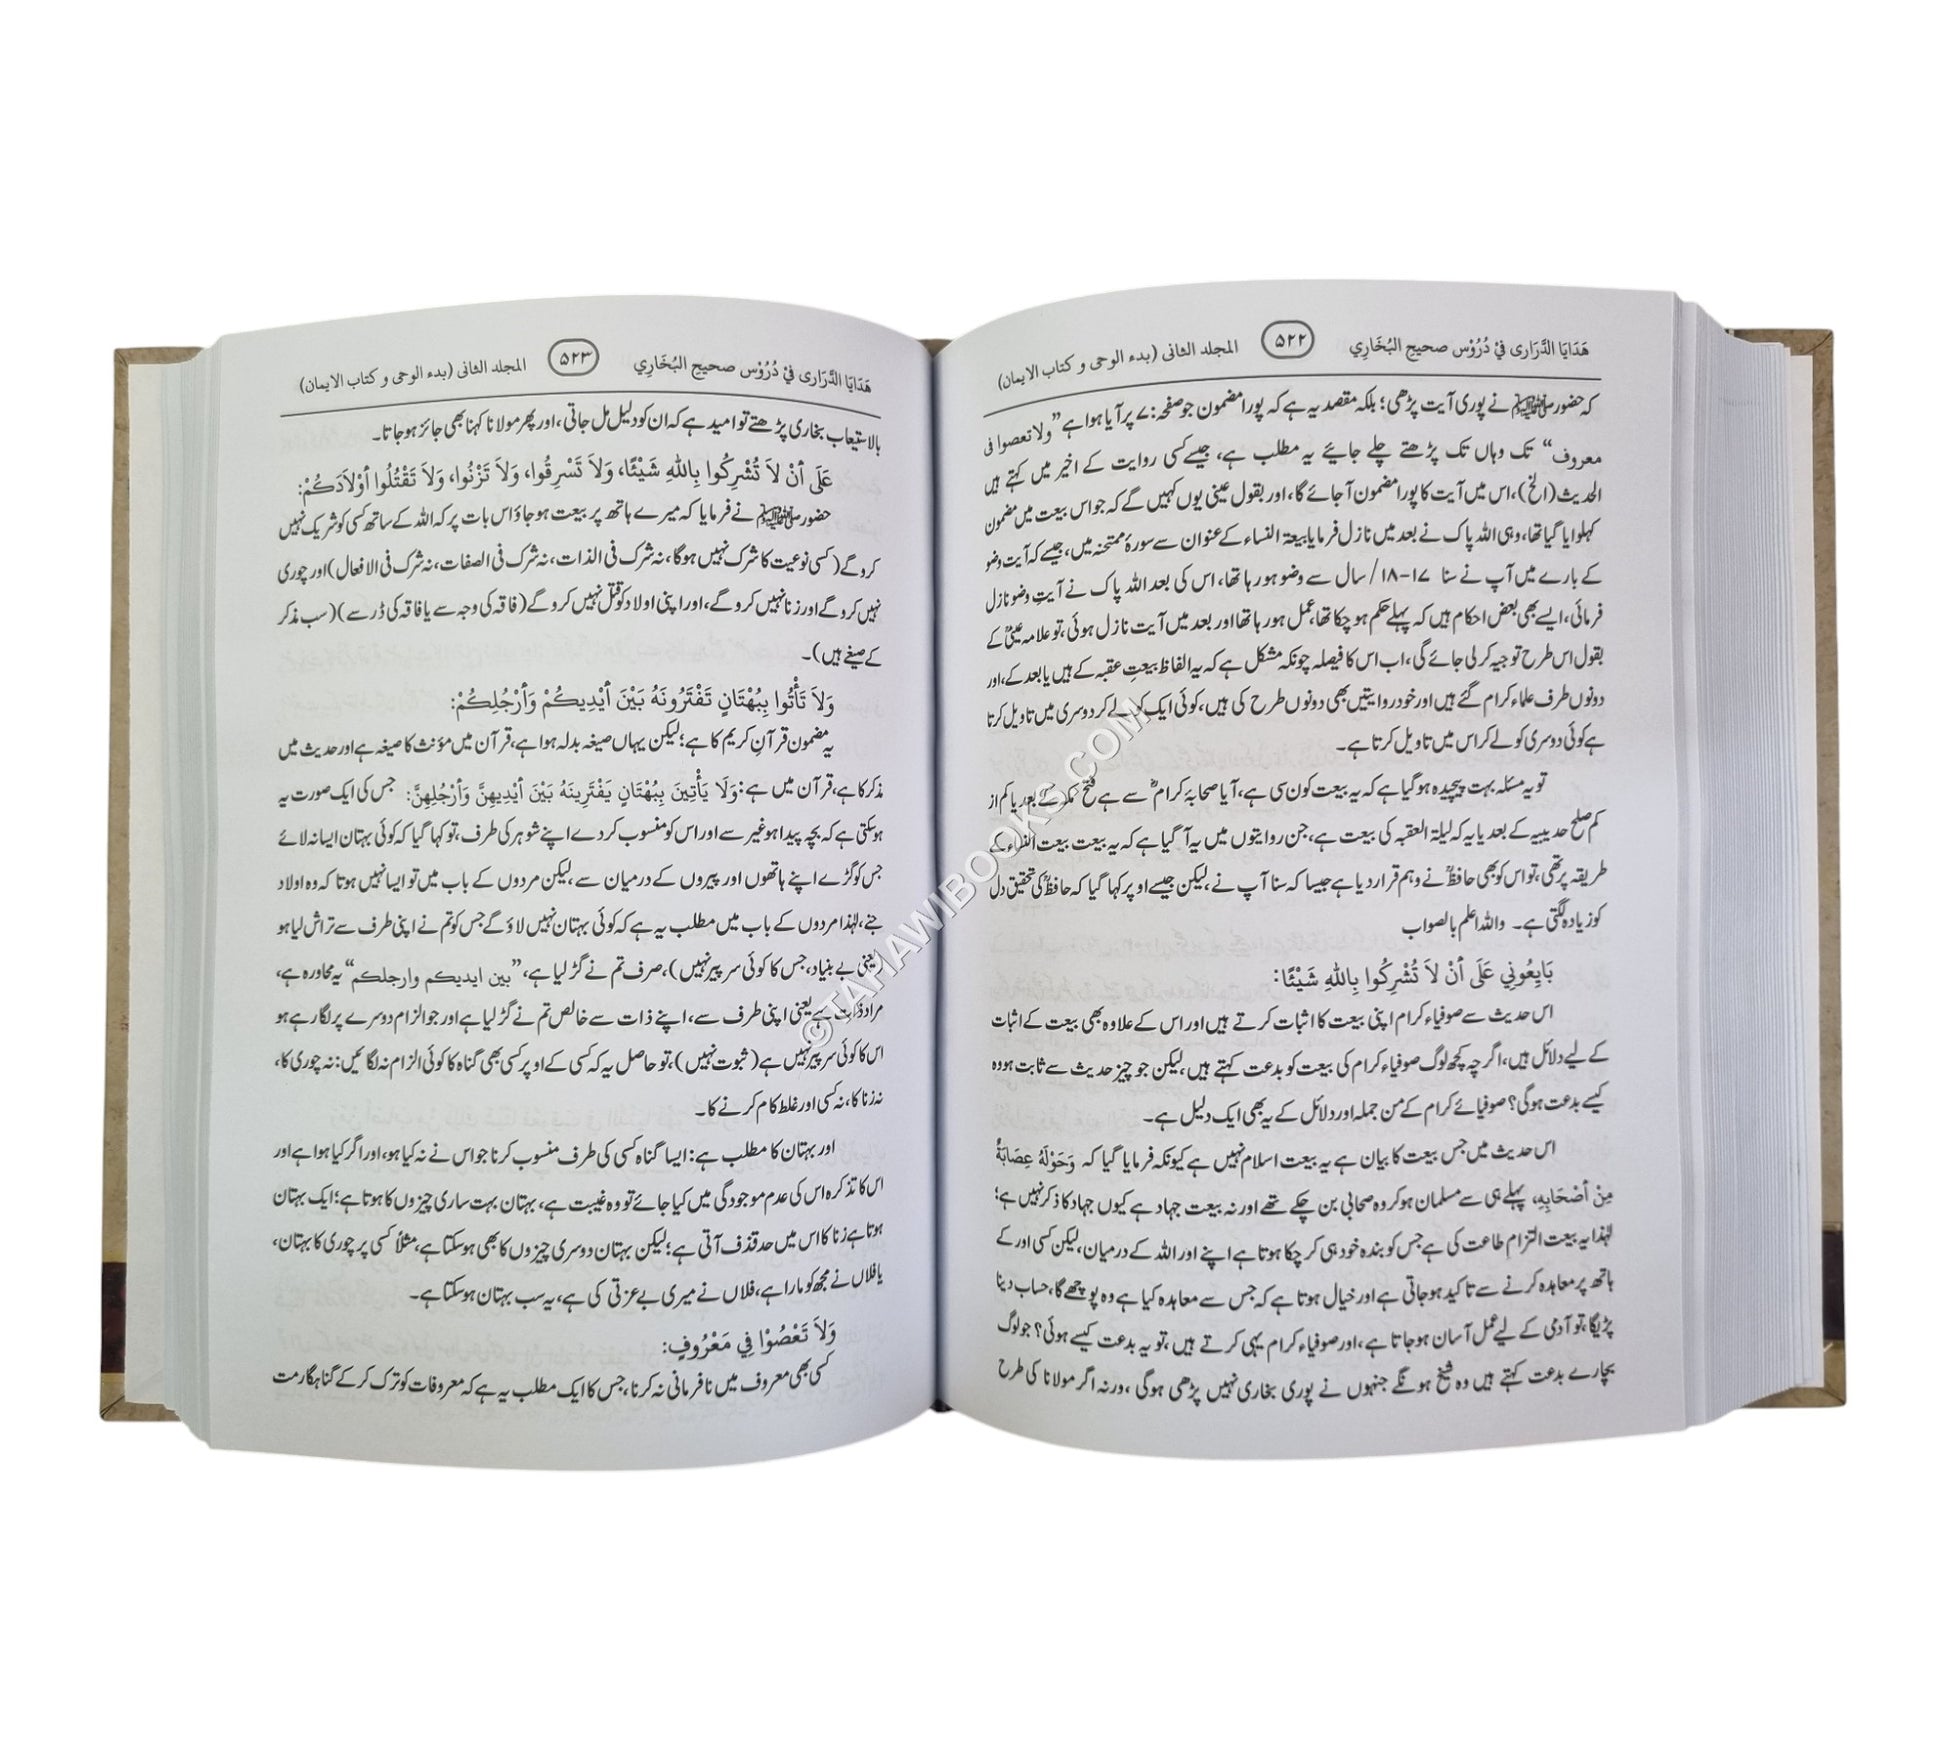 هَدَايَا الدَّرَارِى فِيْ دُرُوْس صحيح البُخَارِي ۵۲۲ المجلد الثانى (بدء الوحى و كتاب الايمان)
کہ حضور صلی اللہ علیہ وسلم نے پوری آیت پڑھی؛ بلکہ مقصد یہ ہے کہ پورا مضمون جو صفحہ: ۷ پر آیا ہوا ہے ”ولا تعصوا فی
معروف“ تک وہاں تک پڑھتے چلے جائیے یہ مطلب ہے، جیسے کسی روایت کے اخیر میں کہتے ہیں
الحدیث (الخ)، اس میں آیت کا پورا مضمون آ جائے گا، اور بقول عینی یوں کہیں گے کہ جو اس بیعت میں مضمون
کہلوایا گیا تھا، وہی اللہ پاک نے بعد میں نازل فرمایا بیعۃ النساء کے عنوان سے سورۂ ممتحنہ میں، جیسے کہ آیت وضو
کے بارے میں آپ نے سنا ۱۷-۱۸/ سال سے وضو ہو رہا تھا، اس کی بعد اللہ پاک نے آیتِ وضو نازل
فرمائی، ایسے بھی بعض احکام ہیں کہ پہلے حکم ہو چکا تھا، عمل ہو رہا تھا اور بعد میں آیت نازل ہوئی، تو علامہ عینیؒ کے
بقول اس طرح توجیہ کر لی جائے گی، اب اس کا فیصلہ چونکہ مشکل ہے کہ یہ الفاظ بیعتِ عقبہ کے ہیں یا بعد کے، اور
دونوں طرف علماء کرام گئے ہیں اور خود روایتیں بھی دونوں طرح کی ہیں، کوئی ایک کو لے کر دوسری میں تاویل کرتا
ہے کوئی دوسری کو لے کر اس میں تاویل کرتا ہے۔
تو یہ مسئلہ بہت پیچیدہ ہو گیا ہے کہ یہ بیعت کون سی ہے، آیا صحابۂ کرامؓ سے ہے فتح مکہ کے بعد یا کم از
کم صلح حدیبیہ کے بعد یا یہ کہ لیلۃ العقبہ کی بیعت ہے، جن روایتوں میں یہ آ گیا ہے کہ یہ بیعت بیعت النساء کے
طریقہ پر تھی، تو اس کو بھی حافظؒ نے وہم قرار دیا ہے جیسا کہ سنا آپ نے، لیکن جیسے اوپر کہا گیا کہ حافظؒ کی تحقیق دل
کو زیادہ لگتی ہے۔ واللہ اعلم بالصواب
بَايِعُونِي عَلَى أَنْ لاَ تُشْرِكُوا بِاللهِ شَيْئًا:
اس حدیث سے صوفیاء کرام اپنی بیعت کا اثبات کرتے ہیں اور اس کے علاوہ بھی بیعت کے اثبات
کے لیے دلائل ہیں، اگرچہ کچھ لوگ صوفیاء کرام کی بیعت کو بدعت کہتے ہیں، لیکن جو چیز حدیث سے ثابت ہو وہ
کیسے بدعت ہو گی؟ صوفیائے کرام کے من جملہ اور دلائل کے یہ بھی ایک دلیل ہے۔
اس حدیث میں جس بیعت کا بیان ہے یہ بیعت اسلام نہیں ہے کیونکہ فرمایا گیا کہ وَحَوْلَهُ عِصَابَةٌ
مِنْ أَصْحَابِهِ، پہلے ہی سے مسلمان ہو کر وہ صحابی بن چکے تھے اور نہ بیعت جہاد ہے کیوں جہاد کا ذکر نہیں ہے؛
لہٰذا یہ بیعت التزام طاعت کی ہے جس کو بندہ خود ہی کر چکا ہوتا ہے اپنے اور اللہ کے درمیان، لیکن کسی اور کے
ہاتھ پر معاہدہ کرنے سے تاکید ہو جاتی ہے اور خیال ہوتا ہے کہ جس سے معاہدہ کیا ہے وہ پوچھے گا، حساب دینا
پڑیگا، تو آدمی کے لیے عمل آسان ہو جاتا ہے، اور صوفیاء کرام یہی کرتے ہیں، تو یہ بدعت کیسے ہوئی؟ جو لوگ
بچارے بدعت کہتے ہیں وہ شیخ ہونگے جنہوں نے پوری بخاری نہیں پڑھی ہو گی، ورنہ اگر مولانا کی طرح
هَدَايَا الدَّرَارِى فِيْ دُرُوْس صحيح البُخَارِي ۵۲۳ المجلد الثانى (بدء الوحى و كتاب الايمان)
بالاستیعاب بخاری پڑھتے تو امید ہے کہ ان کو دلیل مل جاتی، اور پھر مولانا کہنا بھی جائز ہو جاتا۔
عَلَى أَنْ لاَ تُشْرِكُوا بِاللهِ شَيْئًا، وَلاَ تَسْرِقُوا، وَلاَ تَزْنُوا، وَلاَ تَقْتُلُوا أَوْلاَدَكُمْ:
حضور صلی اللہ علیہ وسلم نے فرمایا کہ میرے ہاتھ پر بیعت ہو جاؤ اس بات پر کہ اللہ کے ساتھ کسی کو شریک نہیں
کرو گے (کسی نوعیت کا شرک نہیں ہو گا، نہ شرک فی الذات، نہ شرک فی الصفات، نہ شرک فی الافعال) اور چوری
نہیں کرو گے اور زنا نہیں کرو گے، اور اپنی اولاد کو قتل نہیں کرو گے (فاقہ کی وجہ سے یا فاقہ کی ڈر سے) (سب مذکر
کے صیغے ہیں)۔
وَلاَ تَأْتُوا بِبُهْتَانٍ تَفْتَرُونَهُ بَيْنَ أَيْدِيكُمْ وَأَرْجُلِكُمْ:
یہ مضمون قرآن کریم کا ہے؛ لیکن یہاں صیغہ بدلہ ہوا ہے، قرآن میں مؤنث کا صیغہ ہے اور حدیث میں
مذکر کا ہے، قرآن میں ہے: وَلَا يَأْتِينَ بِبُهْتَانٍ يَفْتَرِينَهُ بَيْنَ أَيْدِيهِنَّ وَأَرْجُلِهِنَّ: جس کی ایک صورت یہ
ہو سکتی ہے کہ بچہ پیدا ہو غیر سے اور اس کو منسوب کر دے اپنے شوہر کی طرف، تو کہا گیا کہ کوئی بہتان ایسا نہ لائے
جس کو گڑے اپنے ہاتھوں اور پیروں کے درمیان سے، لیکن مردوں کے باب میں تو ایسا نہیں ہوتا کہ وہ اولاد
جنے، لہٰذا مردوں کے باب میں مطلب یہ ہے کہ کوئی بہتان نہیں لاؤ گے جس کو تم نے اپنی طرف سے تراش لیا ہو
(یعنی بے بنیاد، جس کا کوئی سر پیر نہیں)، صرف تم نے گڑ لیا ہے، ”بين ايديكم وارجلكم“ یہ محاورہ ہے،
مراد ذات ہے یعنی اپنی طرف سے، اپنے ذات سے خالص تم نے گڑ لیا ہے اور جو الزام دوسرے پر لگا رہے ہو
اس کا کوئی سر پیر نہیں ہے (ثبوت نہیں)، تو حاصل یہ کہ کسی کے اوپر کسی بھی گناہ کا کوئی الزام نہ لگائیں: نہ چوری کا،
نہ زنا کا، نہ کسی اور غلط کام کرنے کا۔
اور بہتان کا مطلب ہے: ایسا گناہ کسی کی طرف منسوب کرنا جو اس نے نہ کیا ہو، اور اگر کیا ہوا ہے اور
اس کا تذکرہ اس کی عدم موجودگی میں کیا جائے تو وہ غیبت ہے، بہتان بہت ساری چیزوں کا ہوتا ہے؛ ایک بہتان
ہوتا ہے زنا کا اس میں حد قذف آتی ہے؛ لیکن بہتان دوسری چیزوں کا بھی ہو سکتا ہے، مثلاً کسی پر چوری کا بہتان،
یا فلاں نے مجھ کو مارا ہے، فلاں نے میری بے عزتی کی ہے، یہ سب بہتان ہو سکتا ہے۔
وَلاَ تَعْصُوْا فِي مَعْرُوفٍ:
کسی بھی معروف میں نافرمانی نہ کرنا، جس کا ایک مطلب یہ ہے کہ معروفات کو ترک کر کے گناہگار مت
©TAHAWIBOOKS.COM